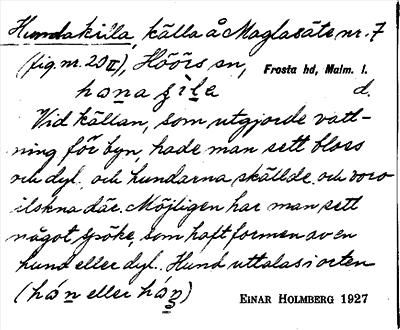 Hundakilla, källa å Maglasäte nr. 7
(fig. nr. 20 II), Höörs sn, Frosta hd, Malm. l.
d.
Vid källan, som utgjorde vatt-
ning för byn, hade man sett bloss
och dyl. och hundarna skällde och voro
ilskna där. Möjligen har man sett
något spöke, som haft formen av en
hund eller dyl. Hund uttalas i orten
EINAR HOLMBERG 1927